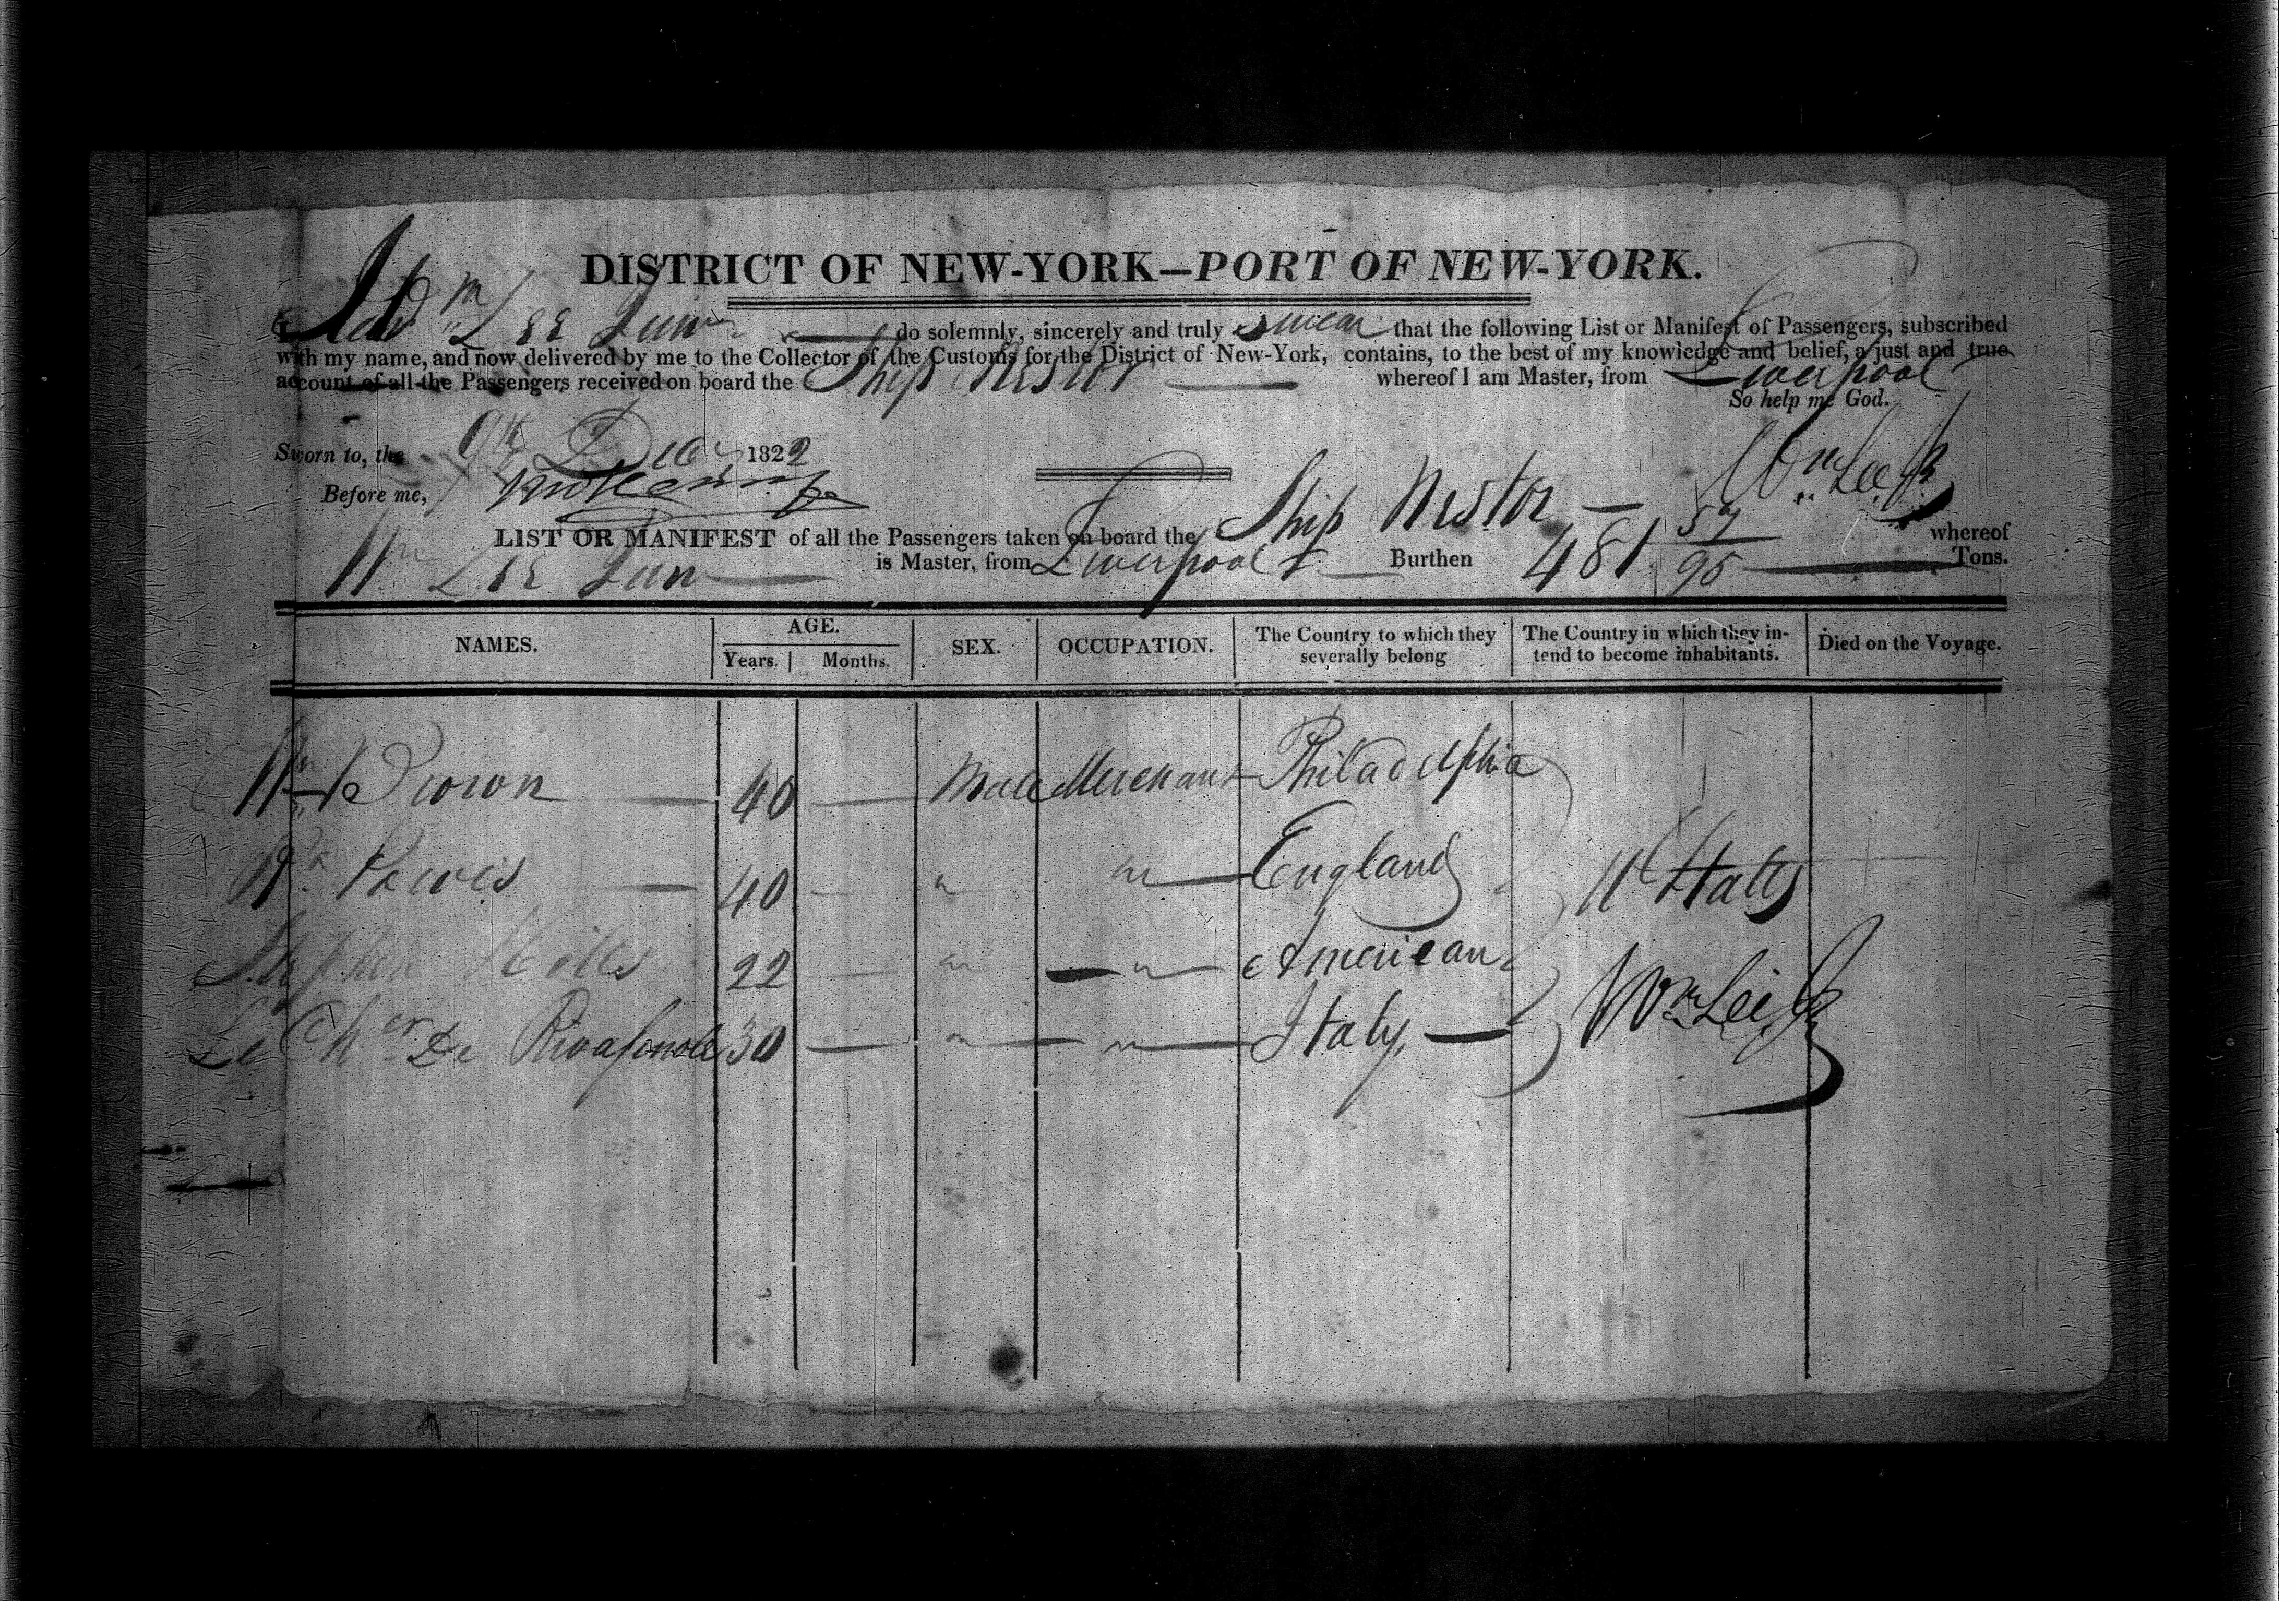 DISTRICT OF NEW-YORK—PORT OF NEW-YORK.
I, Wm Lee Junr do solemnly, sincerely and truly swear that the following List or Manifest of Passengers, subscribed
with my name, and now delivered by me to the Collector of the Customs for the District of New-York, contains, to the best of my knowledge and belief, a just and true
account of all the Passengers received on board the Ship Nestor whereof I am Master, from Liverpool
So help me God.
Sworn to, the 9th Decr 1822
Before me,
Wm Lee Jr
LIST OR MANIFEST of all the Passengers taken on board the Ship Nestor — whereof
Wm Lee Jun is Master, from Liverpool Burthen 481 57/95 Tons.
NAMES. AGE. Years. Months. SEX. OCCUPATION. The Country to which they severally belong The Country in which they intend to become inhabitants. Died on the Voyage.
Wm Brown 40 — Male Merchant Philadelphia
Rd Lewis — 40 — " " England U States
Stephen Hills 22 — " " American
Le Cher De Rivafinoli 30 — " " Italy, —
Wm Lee Jr